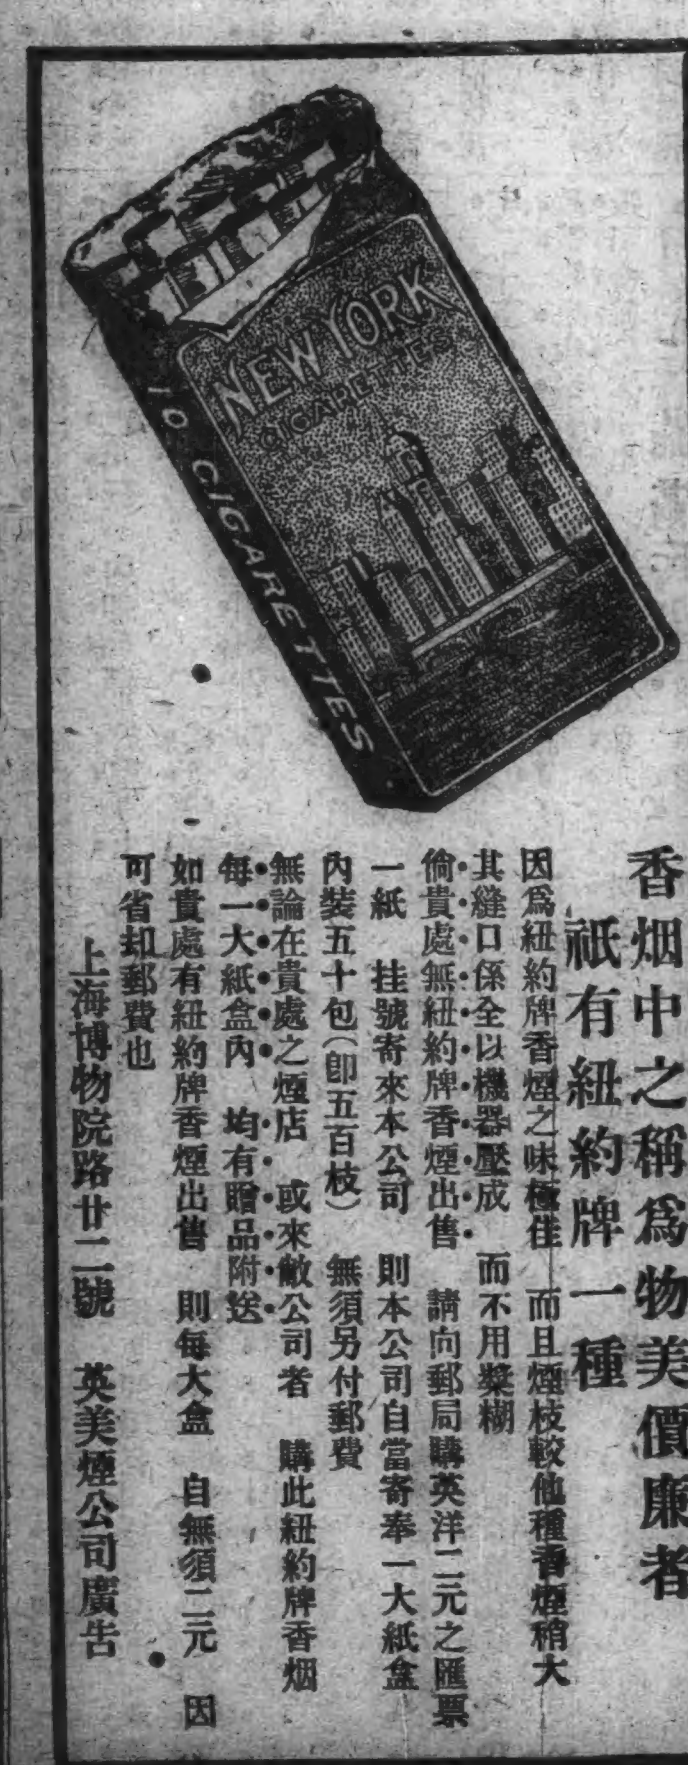 NEW YORK
CIGARETTES
10 CIGARETTES
香烟中之稱爲物美價廉者
祇有紐約牌一種
因爲紐約牌香煙之味極佳　而且煙枝較他種香煙稍大
其縫口係全以機器壓成　而不用漿糊
倘貴處無紐約牌香煙出售　請向郵局購英洋二元之匯票
一紙　挂號寄來本公司　則本公司自當寄奉一大紙盒
內裝五十包（卽五百枝）　無須另付郵費
無論在貴處之煙店　或來敝公司者　購此紐約牌香烟
每一大紙盒內　均有贈品附送
如貴處有紐約牌香煙出售　則每大盒　自無須二元　因
可省却郵費也
上海博物院路廿二號　英美煙公司廣告